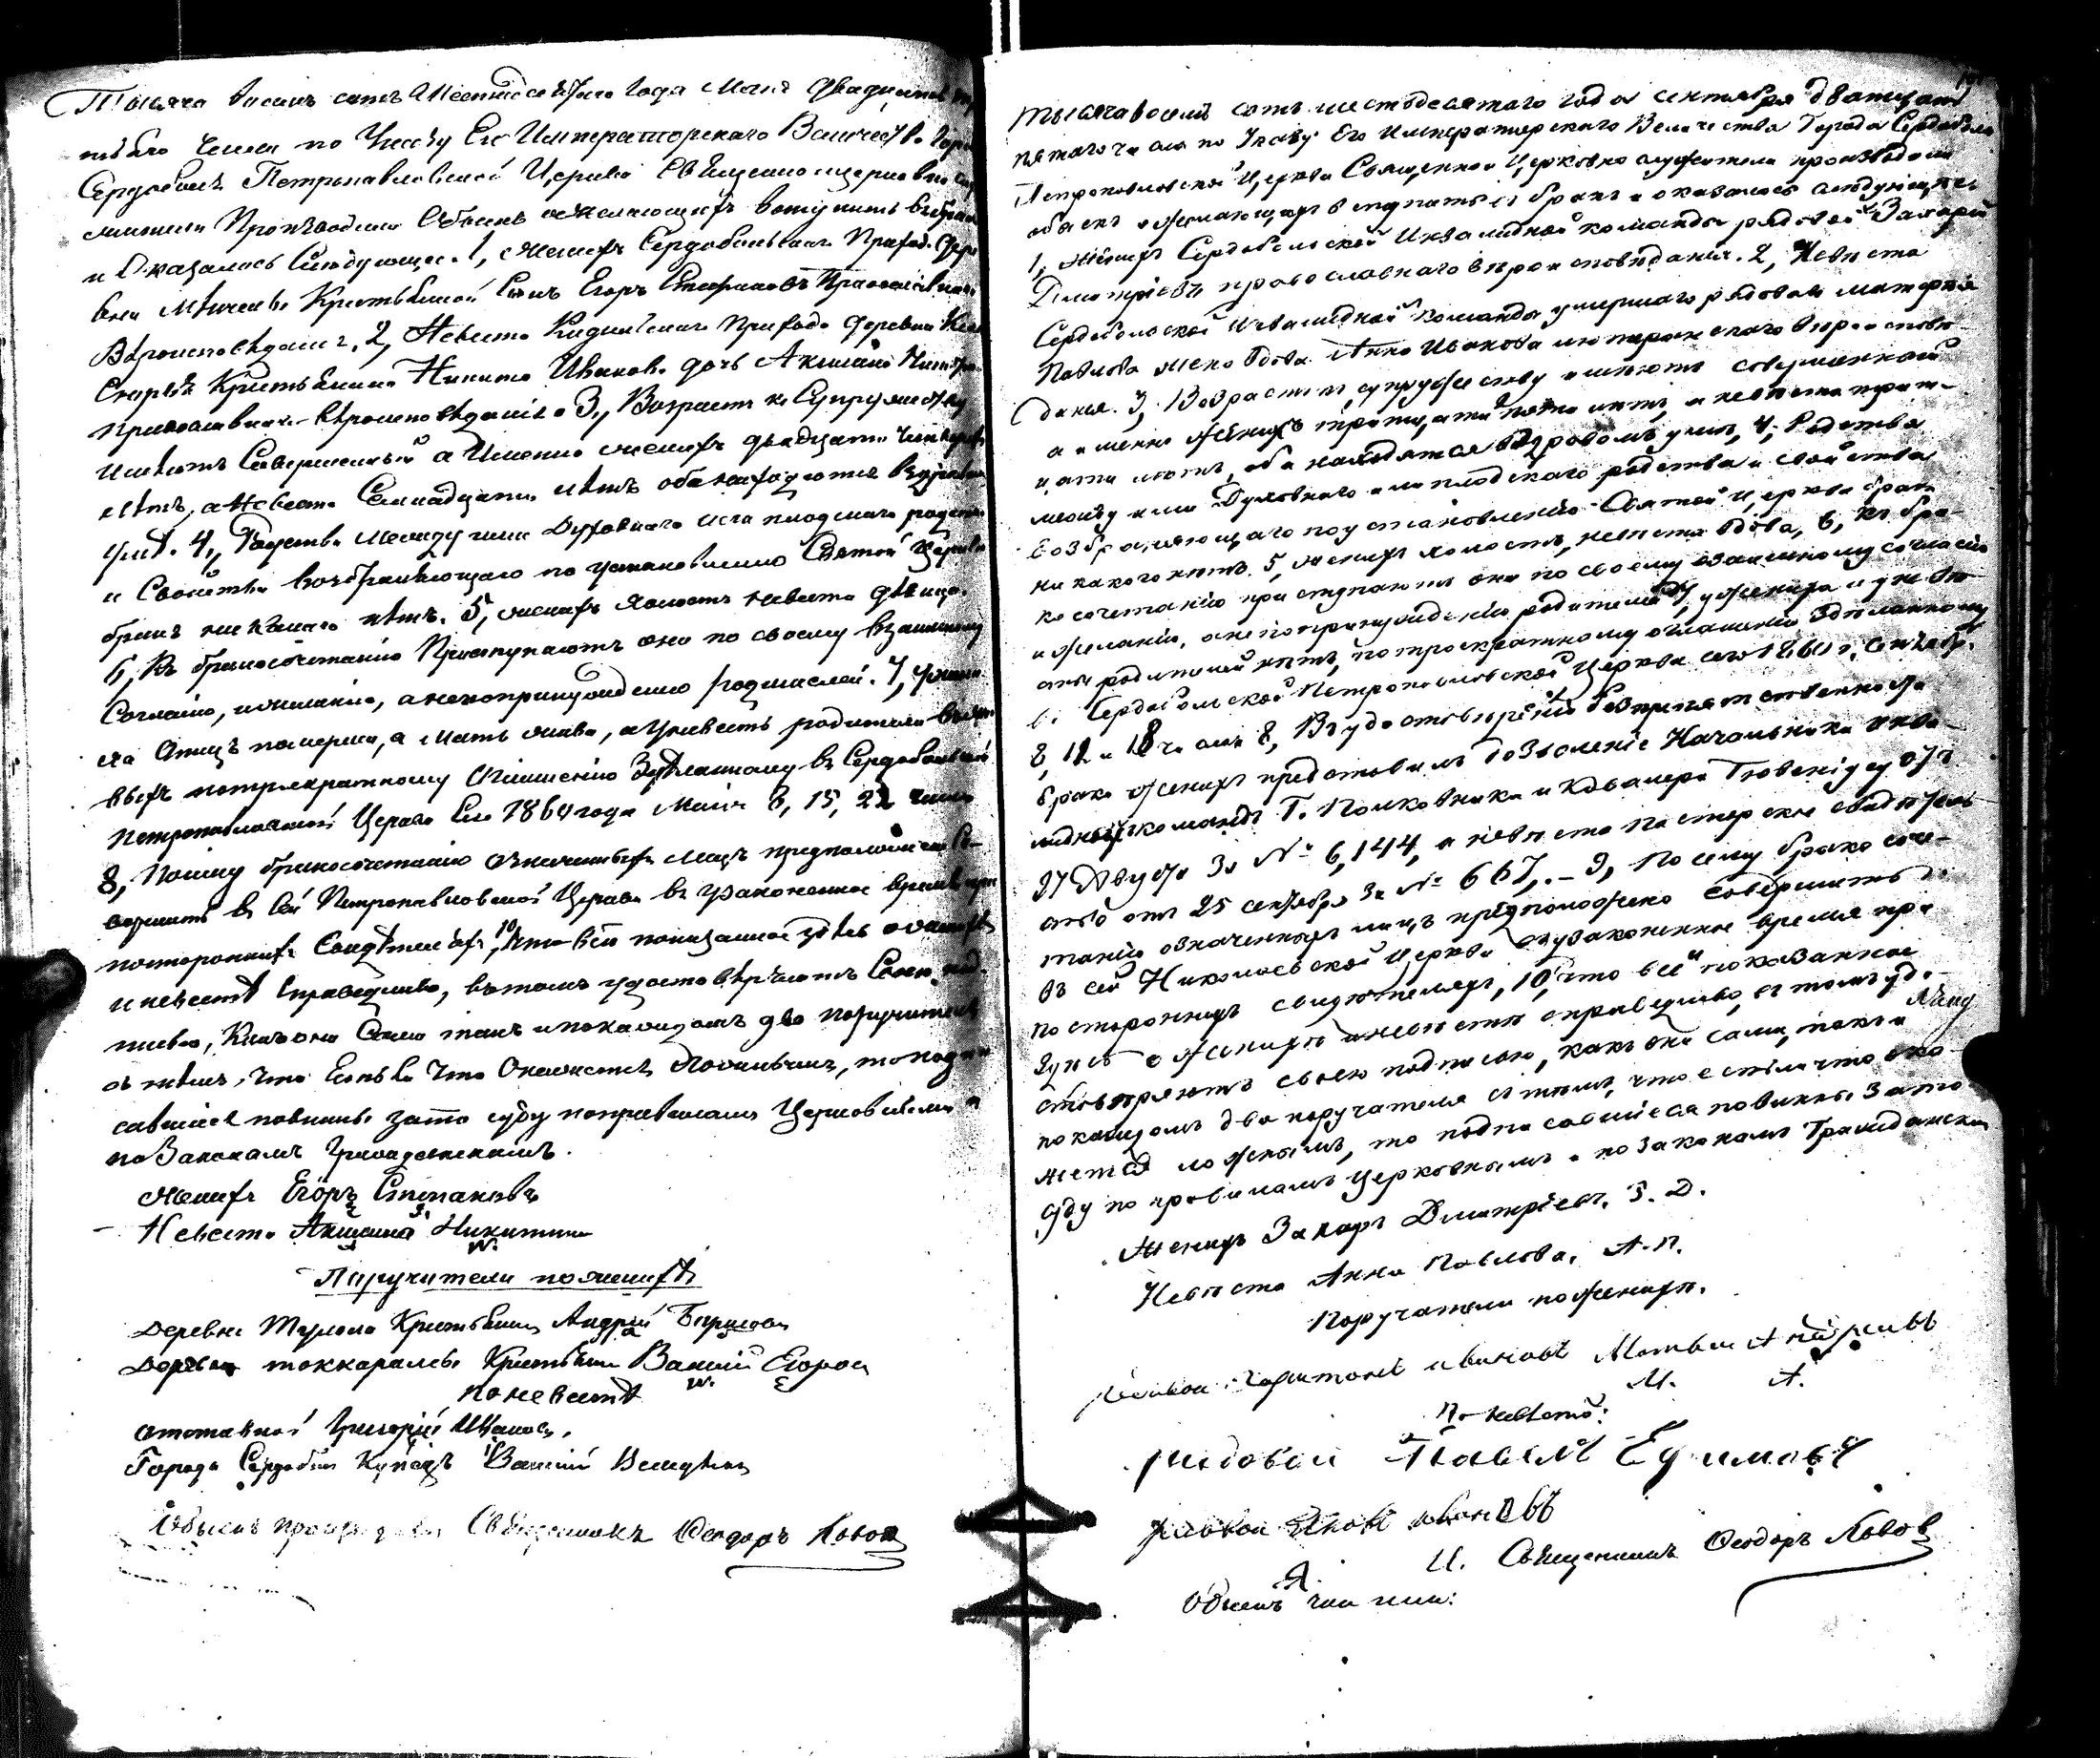 Тысяча восемь сотъ шестьдесятаго года Маія двадцать
пятаго числа по Указу Его Императорскаго Величества Города
Сердоболя Петропавловской Церкви Священноцерковно
служители Производили Обыскъ о желающихъ вступить въ бракъ
и Оказалось Слѣдующее. 1, Женихъ Сердобольскаго Прихода Дере
вни Крестьянской Сынъ Егоръ Степановъ Православнаго
Вѣроисповѣданія. 2, Невѣста Прихода Деревни
Крестьянина Никиты Иванова дочь Никитина
православнаго вѣроисповѣданія. 3, Возрастъ къ Супружеству
имѣютъ Совершенный а Именно женихъ двадцати четырехъ
лѣтъ, а Невѣста Семнадцати лѣтъ оба находятся въ здравомъ
умѣ. 4, Родства между ими Духовнаго или плотскаго родства
и Свойства возбраняющаго по установленію Святой Церкви
бракъ никакого нѣтъ. 5, женихъ холостъ невѣста дѣвица.
6, Къ бракосочетанію Приступаютъ они по своему взаимному
Согласію, и желанію, а не по принужденію родителей. 7, у жени
ха Отецъ померши, а Мать жива, а у невѣсты родители
выхъ по троекратному Оглашенію Здѣланному въ Сердобольской
Петропавловской Церкви Сего 1860 года Маія 8, 15, 22 числа
8, Посему бракосочетанію означенныхъ лицъ предположено Со-
вершить въ Сей Петропавловской Церкви въ узаконенное время при
постороннихъ Свидѣтеляхъ, 10, что всё показанное здѣсь о женихѣ
и невѣстѣ справедливо, въ томъ удостовѣряютъ Своею под-
писью, Какъ они Сами такъ и по каждомъ два поручителя
съ тѣмъ, что Естьли что Окажется Ложнымъ, то подпи
савшіеся повинны за то суду по правиламъ Церковнымъ и
по Законамъ Гражданскимъ.
Женихъ Егоръ Степановъ
Невѣста Никитина
Поручители по женихѣ
Деревни Тулола Крестьянинъ Андрей Борисовъ
Деревни токкарлакс Крестьянинъ Василій Егоровъ
по невѣстѣ
отставной Григорій Ивановъ.
Города Сердоболя Купецъ Василій
Обыскъ производилъ Священникъ Ѳеодоръ Поповъ
тысяча восемь сотъ шестьдесятаго года сентября двадцать
пятаго числа по Указу Его Императорскаго Величества Города Сердоболя
Петропавловской Церкви Священно Церковно служители производили
обыскъ о желающихъ вступить въ бракъ и оказалось слѣдующее.
1, Женихъ Сердобольской Инвалидной команды рядовой Захарій
Дмитріевъ православнаго вѣроисповѣданія. 2, Невѣста
Сердобольской Инвалидной команды умершаго рядоваго
Павлова жена вдова Анна Иванова лютеранскаго вѣроисповѣ-
данія. 3, Возрастъ къ супружеству имѣютъ совершенный
а именно женихъ тридцати пяти лѣтъ, а невѣста трид-
цати лѣтъ, оба находятся въ здравомъ умѣ, 4, Родства
между ими Духовнаго или плотскаго родства и свойства
возбраняющаго по установленію Святой Церкви бракъ
никакого нѣтъ. 5, женихъ холостъ, невѣста вдова, 6, къ бра-
косочетанію приступаютъ они по своему взаимному согласію
и желанію, а не по принужденію родителей, 7, у жениха и у невѣ-
сты родителей нѣтъ, по троекратному оглашенію здѣланному
въ Сердобольской Петропавловской Церкви сего 1860 г. Сентябр.
8, 12 и 18 числа 8, Въ удостовѣреніе безпрепятственности
брака женихъ представилъ Позволеніе Начальника инва-
лидной команды Г. Полковника и Кавалера отъ
27 Августа за № 6,144, а невѣста пасторское свидѣтель-
ство отъ 25 сентября за № 667,. – 9, Посему бракосоче-
танію означенныхъ лицъ предположено совершить
въ сей Николаевской церкви въ узаконенное время при
постороннихъ свидѣтеляхъ, 10, что всё показанное
здѣсь о женихѣ и невѣстѣ справедливо, въ томъ удо-
стовѣряютъ своею подписью, какъ они сами, такъ и
по каждомъ два поручателя съ тѣмъ, что естьли что ока-
жется ложнымъ, то подписавшіеся повинны за то
суду по правиламъ церковнымъ и по законамъ Гражданскимъ
Женихъ Захаръ Дмитріевъ. З. Д.
Невѣста Анна Павлова, А. П.
Поручатели по женихѣ.
рядовой Харитонъ Ивановъ Матвей Андреевъ
М. А.
По невѣстѣ:
рядовой Павелъ Ефимовъ
рядовой Яковъ Ивановъ
Я. И. Священникъ Ѳеодоръ Поповъ
Обыскъ чинили: